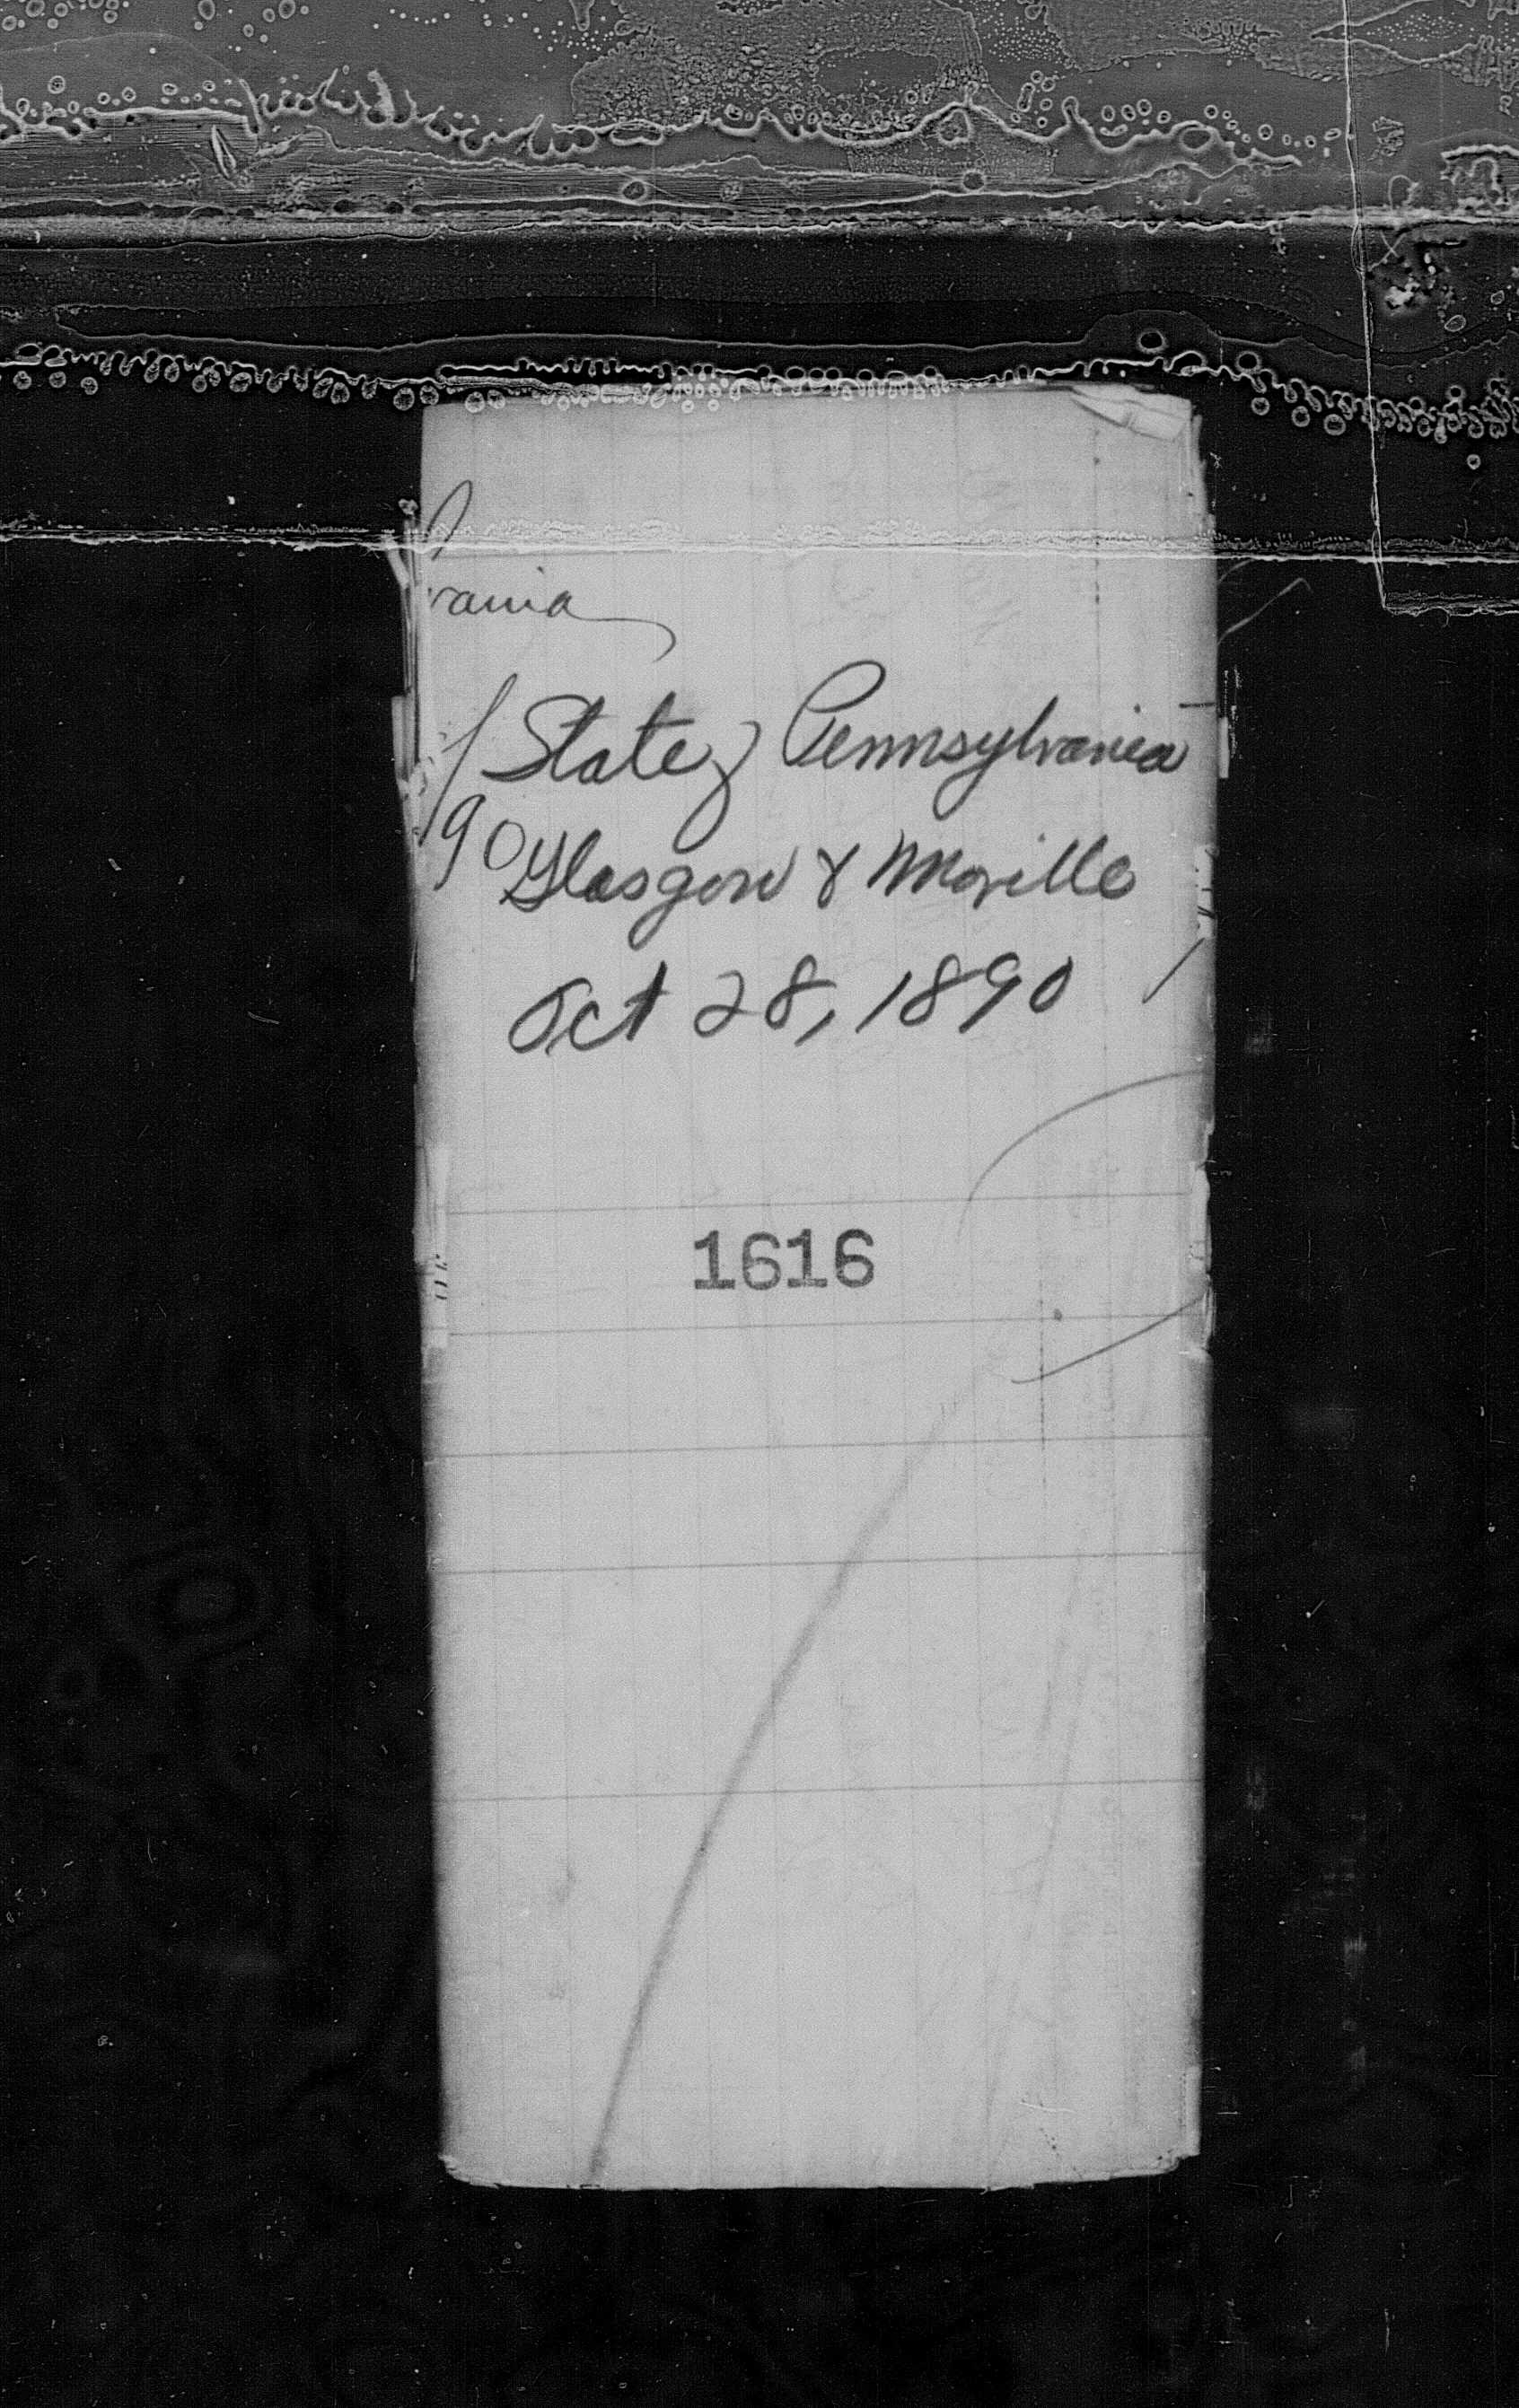 vania
State of Pennsylvania
90
Glasgow & Moville
Oct 28, 1890
1616